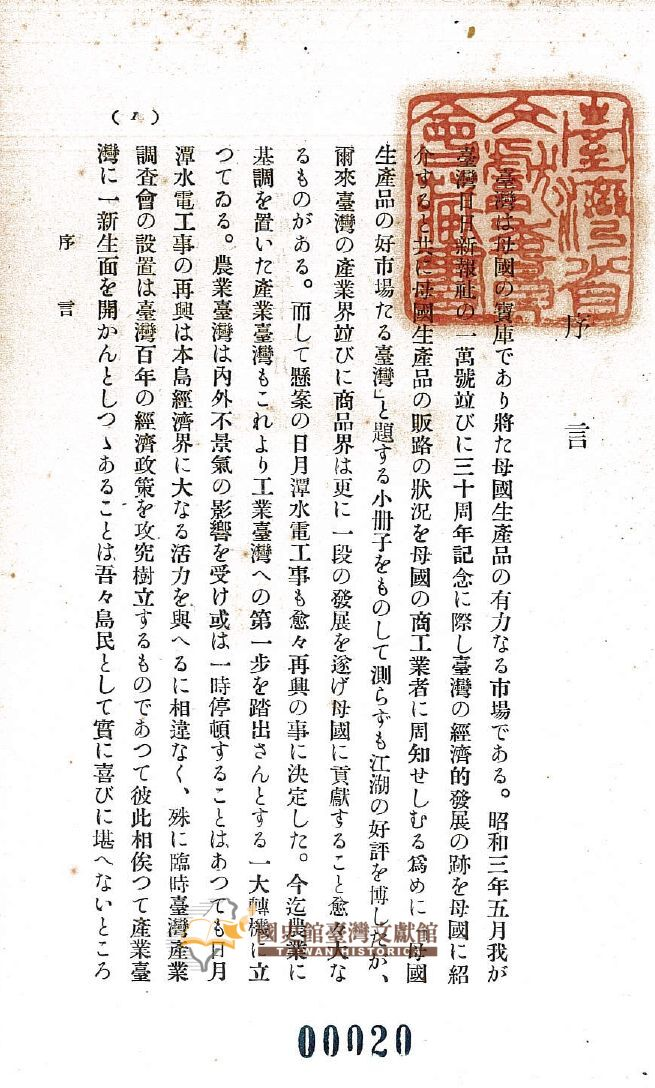 序言
臺灣は母國の寶庫であり將た母國生產品の有力なる市場である。昭和三年五月我が
臺灣日日新報社の一萬號並びに三十周年記念に際し臺灣の經濟的發展の跡を母國に紹
介すると共に母國生產品の販路の狀況を母國の商工業者に周知せしむる爲めに「母國
生產品の好市場たる臺灣」と題する小册子をものして測らずも江湖の好評を博したが、
爾來臺灣の產業界竝びに商品界は更に一段の發展を遂げ母國に貢獻すること愈々大な
るものがある。而して懸案の日月潭水電工事も愈々再興の事に決定した。今迄農業に
基調を置いた產業臺灣もこれより工業臺灣への第一步を踏出さんとする一大轉機に立
つてゐる。農業臺灣は內外不景氣の影響を受け或は一時停頓することはあつても日月
潭水電工事の再興は本島經濟界に大なる活力を與へるに相違なく、殊に臨時臺灣產業
調査會の設置は臺灣百年の經濟政策を攻究樹立するものであつて彼此相俟つて產業臺
灣に一新生面を開かんとしつゝあることは吾々島民として實に喜びに堪へないところ
序言
(1)
臺灣省
文獻委員
會藏書
國史館臺灣文獻館
TAIWAN HISTORICA
00020